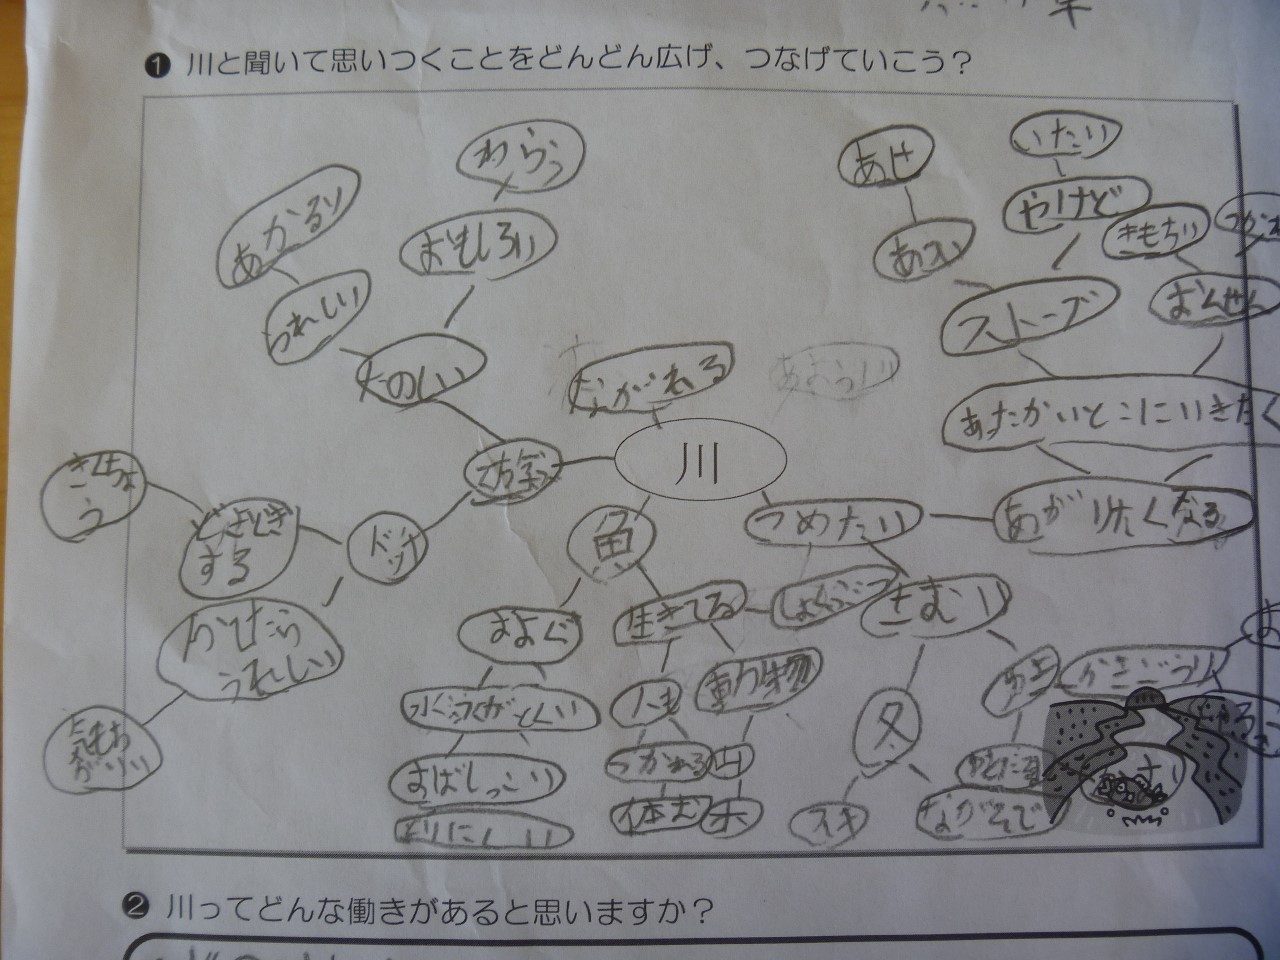 ❶ 川と聞いて思いつくことをどんどん広げ、つなげていこう？
わらう
あせ
いたい
あかるい
おもしろい
あつい
やけど
きもちい
うれしい
ストーブ
おんせん
たのしい
ながれる
あたかいとこにいきたく
川
きんちょう
魚
つめたい
あがりたくなる
どきどき
する
ドッチ
かてたら
うれしい
およぐ
生きてる
しょくぶつ
さむい
気もち
がいい
人も
動物
冬
ゆき
かきごうり
すばしっこい
つかれる
山
休む
木
スキ
ながそで
とりにくい
❷ 川ってどんな働きがあると思いますか？